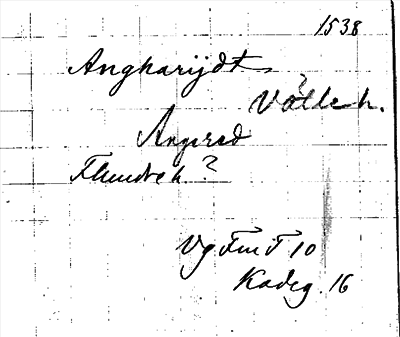 1538
Angkarijdt
? Vätle h.
Angered
Flundre h ?
Vg Fm F 10
Kadeg. 16